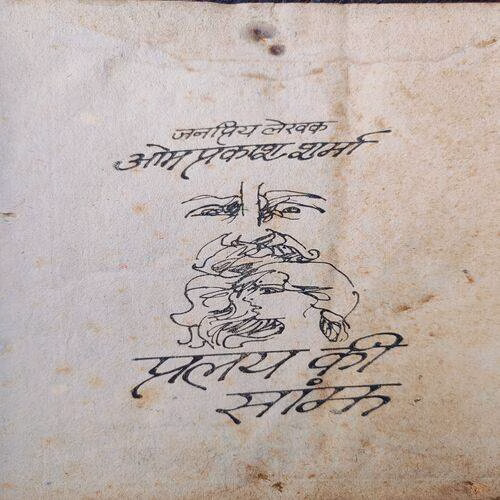 जनप्रिय लेखक
ओम प्रकाश शर्मा
प्रलय की
सांझ